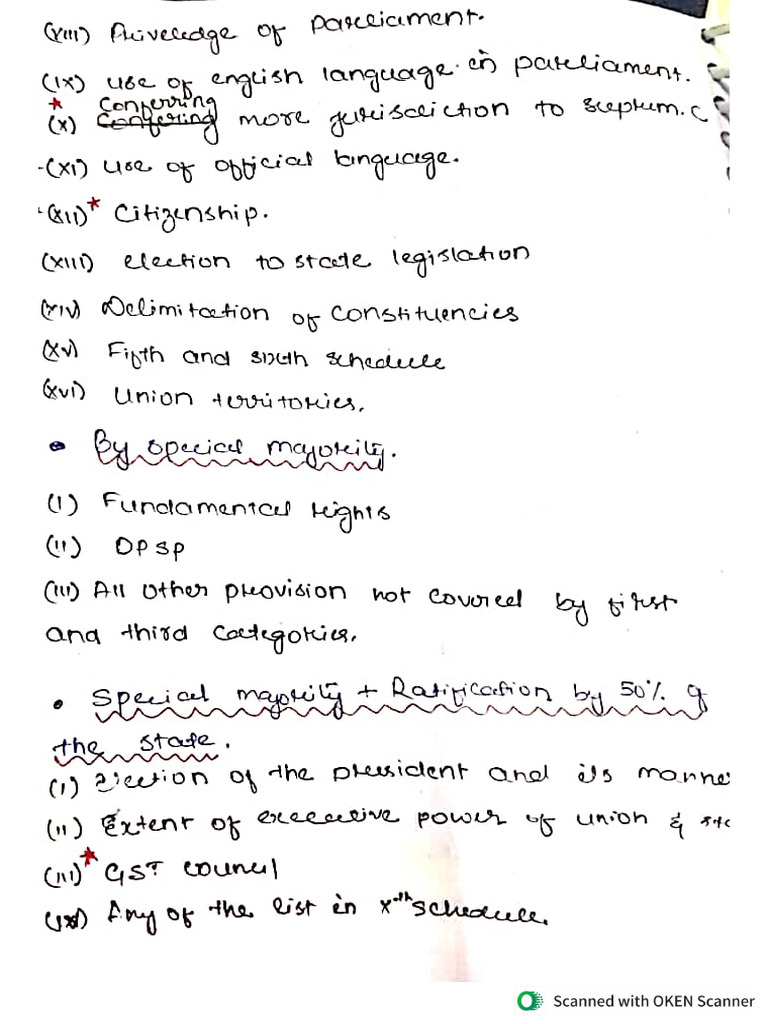 (XIII) Priveledge of parliament.
(IX) use of english language in parliament.
* Conferring
(X) Confering more jurisdiction to suprem. C
(XI) use of official language.
(XII)* Citizenship.
(XIII) election to state legislation
(XIV) Delimitation of constituencies
(XV) Fifth and sixth schedule
(XVI) Union territories.
• By special majority.
(I) Fundamental rights
(II) DPSP
(III) All other provision not covered by first
and third categories.
• Special majority + Ratification by 50% of
the state.
(I) Election of the president and its manne
(II) Extent of executive power of union & sta
(III)* GST council
Any of the list in Xth schedule.
Scanned with OKEN Scanner